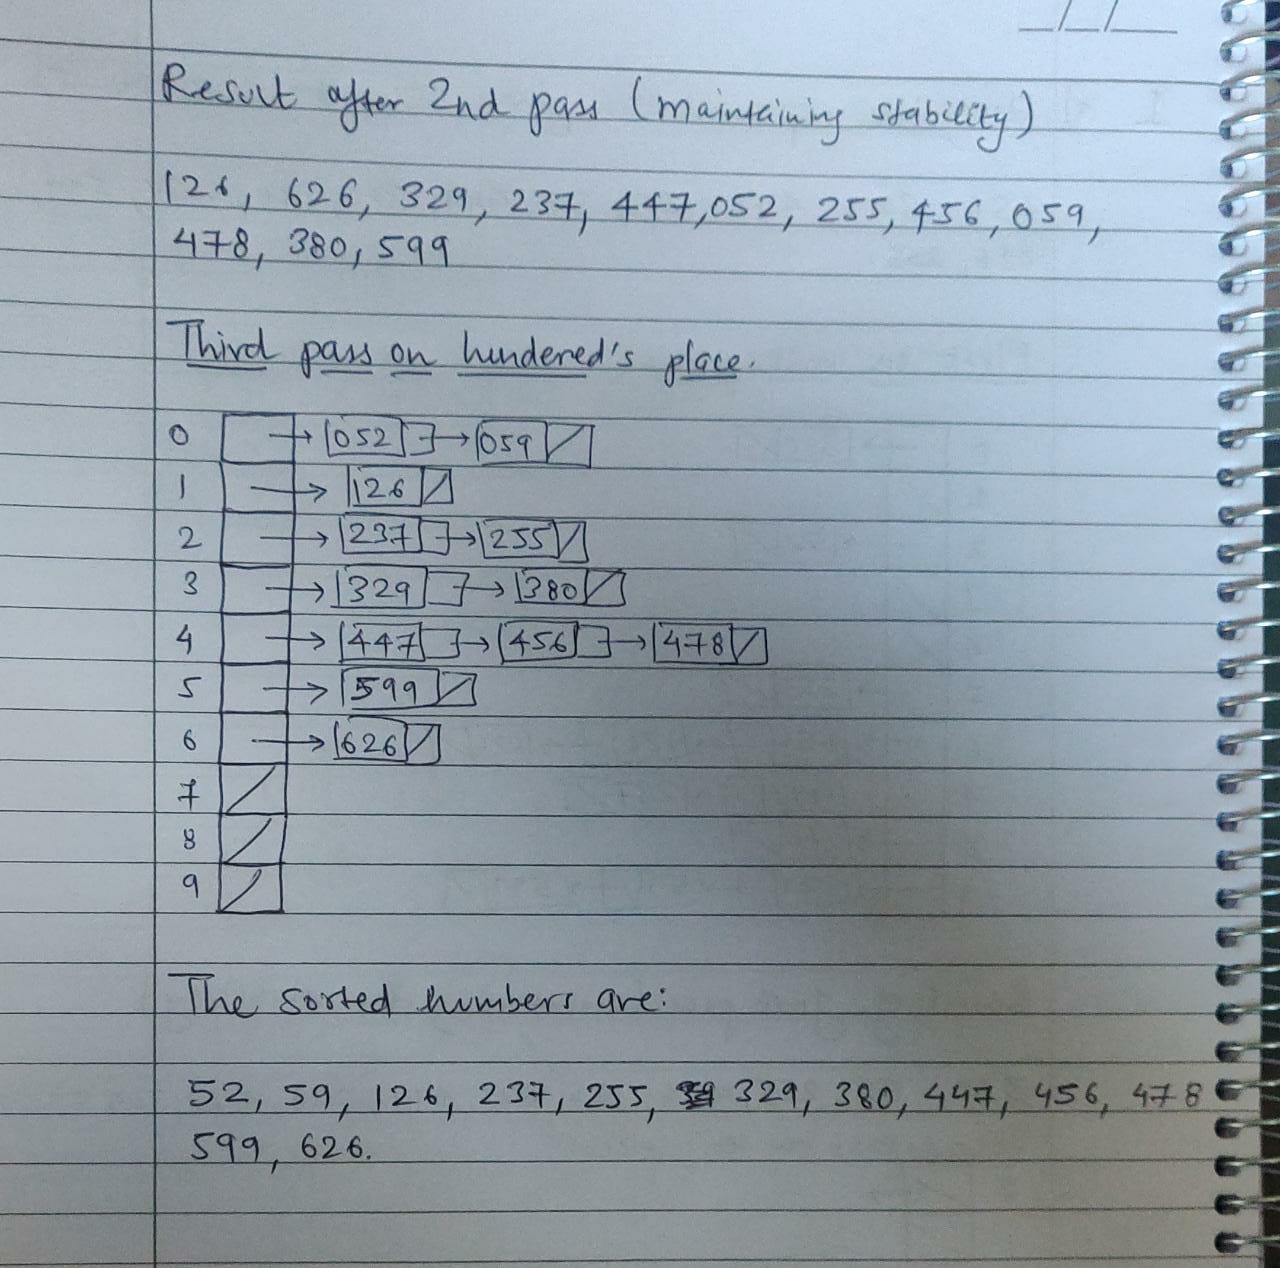 __/__/____
Result after 2nd pass (maintaining stability)
126, 626, 329, 237, 447, 052, 255, 456, 059,
478, 380, 599
Third pass on hundered's place.
0 → 052 → 059
1 → 126
2 → 237 → 255
3 → 329 → 380
4 → 447 → 456 → 478
5 → 599
6 → 626
7
8
9
The sorted numbers are:
52, 59, 126, 237, 255, 329, 380, 447, 456, 478
599, 626.